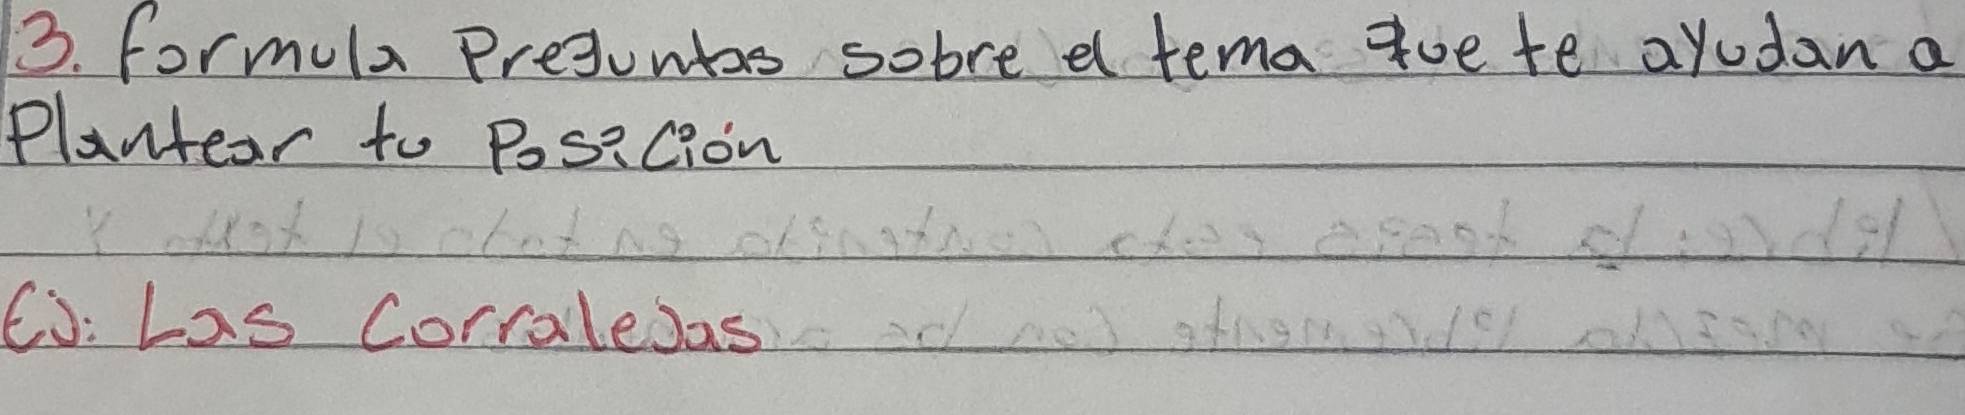 3. formula Preguntas sobre el tema que te ayudan a
Plantear tu Posición
Ej: Las Corralejas